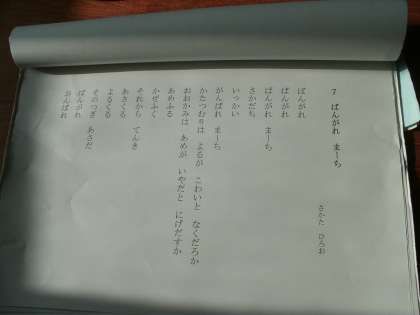 7 ばんがれ まーち
さかた ひろお
ばんがれ
ばんがれ
ばんがれ まーち
さかだち
いっかい
がんばれ まーち
かたつむりは よるが こわいと なくだろか
おおかみは あめが いやだと にげだすか
あめふる
かぜふく
それから てんき
あさくる
よるくる
そのつぎ あさだ
ばんがれ
がんばれ